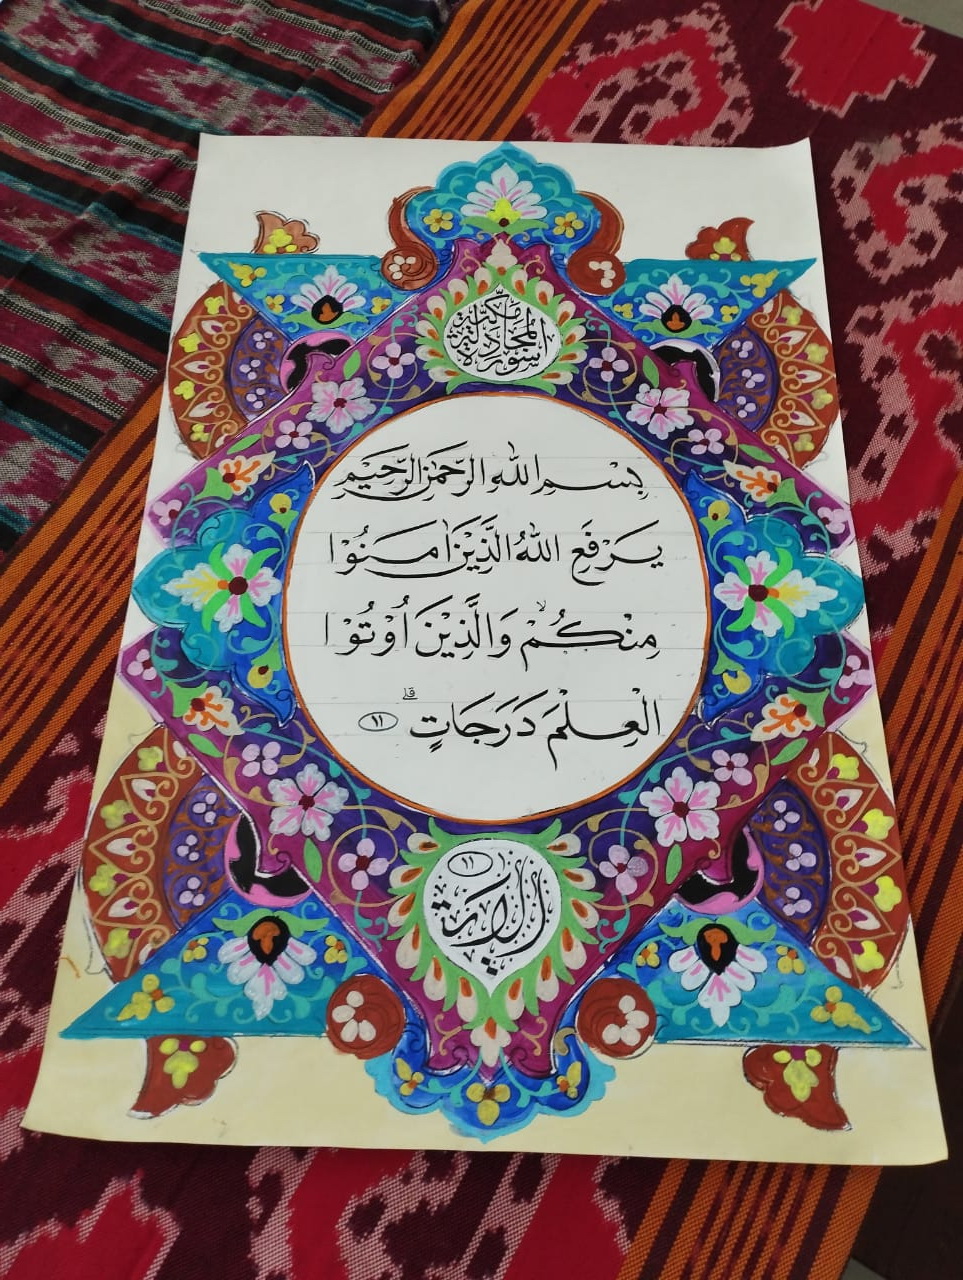 سورة المجادلة مكية
بِسْمِ اللهِ الرَّحْمٰنِ الرَّحِيْمِ
يَرْفَعِ اللهُ الَّذِيْنَ اٰمَنُوْا
مِنْكُمْۙ وَالَّذِيْنَ اُوْتُوْا
الْعِلْمَ دَرَجَاتٍۗ ١١
١١
الاية